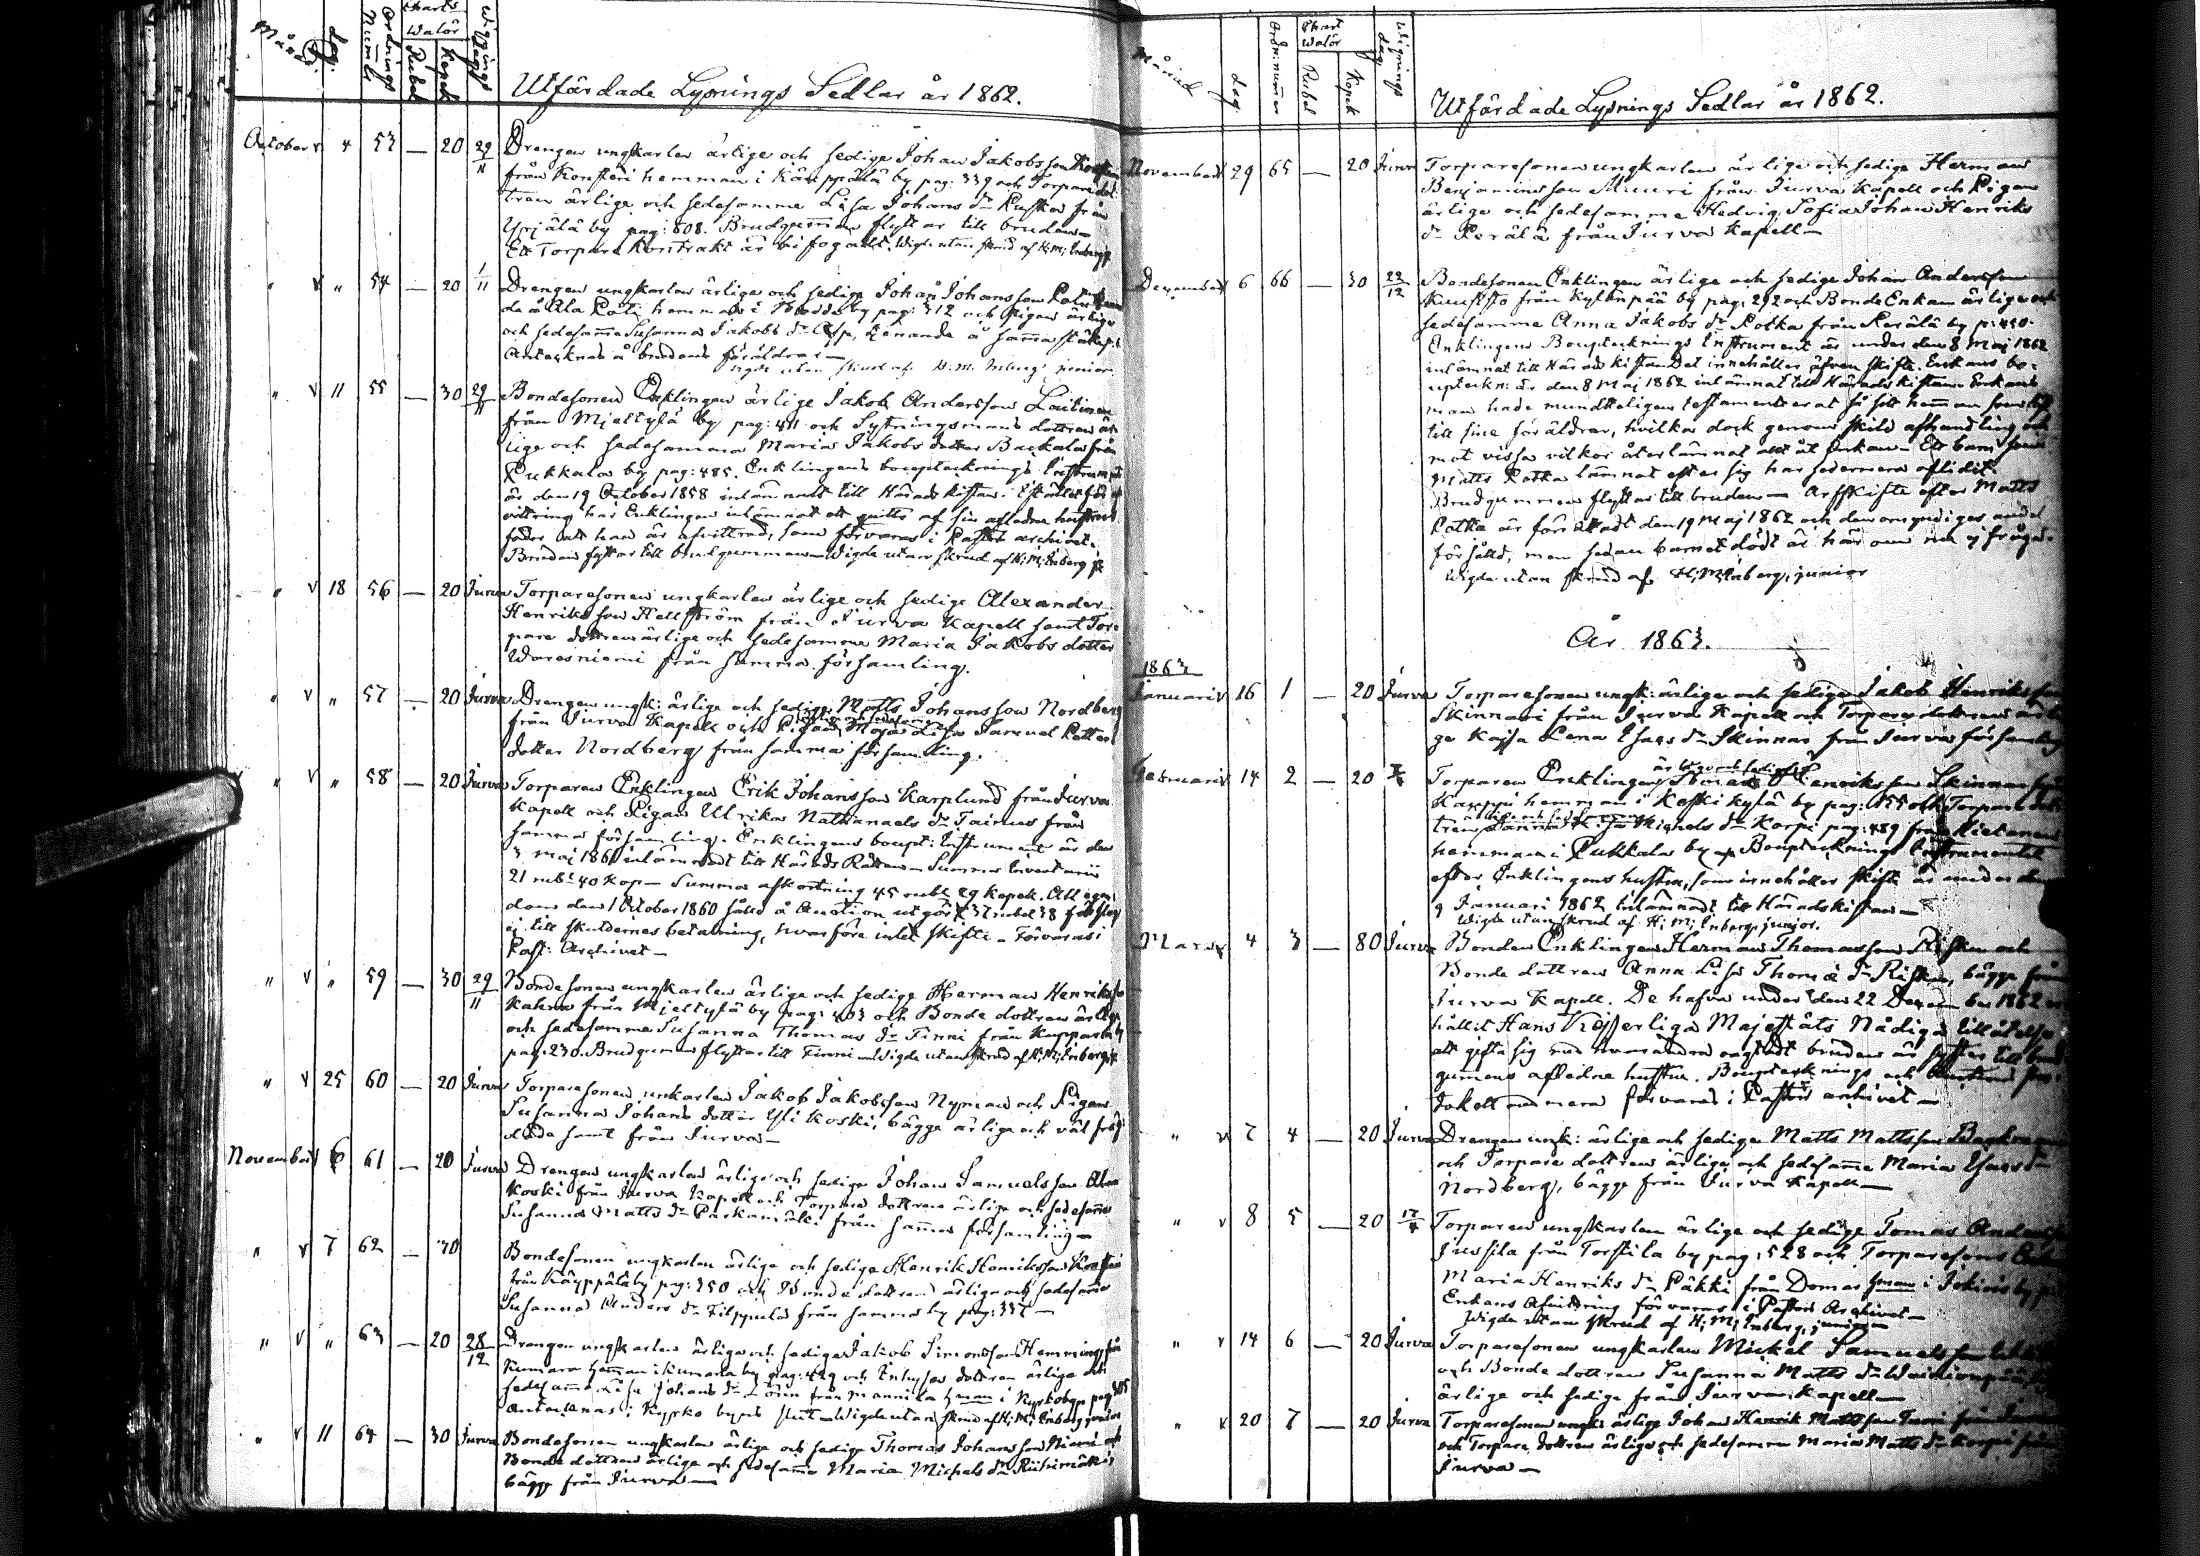 Månad
dag.
Ordnings Num̄er
Charts Walör
Rubel
Kopek
Wigningsdag
Utfärdade Lysnings Sedlar år 1862.
October v 4 53 — 20 29/11 Drengen ungkarlen ärlige och sedige Johan Jakobsson
från Konsteri hemman i Käyppälä by pag: 339 och Torparedot-
tren ärlige och sedesamme Lisa Johans d:r Ruska från
Ypjälä by pag: 508. Brudgum̄en flyttar till bruden—
Ett Torpare Kontrakt är bifogadt. Wigde utan skrud af H: M: Enberg jr
" v " 54 — 20 1/11 Drengen ungkarlen ärlige och sedige Johan Johansson
och sedesam̄a Susanna Jakobs d:r
Antecknad å brudens föräldrar—
Wigde utan skrud af H. M. Enberg junior
" v 11 55 — 30 29/11 Bondesonen Enklingen ärlige Jakob Andersson Loutinen
från Mjeltylä by pag: 411 och Sytningsmans dottren är-
lige och sedesamma Maria Jakobs dotter Buckala från
Pukkala by pag: 485. Enklingens bouptecknings Instrument
är den 19 October 1858 inlämnadt till Härads kistan. I stället för af-
vittring har Enklingen inlämnat ett quitto af sin aflidna hustrus
fader att han är afvittrad, som förvaras i Pastors archivet.
Bruden flyttar till brudgummen— Wigda utan skrud af H: M: Enberg jr
" v 18 56 — 20 Jurva Torparesonen ungkarlen ärlige och sedige Alexander
Henriksson Hellström från Jurva Kapell samt Tor-
pare dottren ärlige och sedesamme Maria Jakobs dotter
Waresniemi från samma församling.
" v " 57 — 20 Jurva Drengen ungk: ärlige och sedige Matts Johansson Nordberg
från Jurva Kapell och Pigan Maja Lisa Samuel Petters
dotter Nordberg från samma församling.
" v " 58 — 20 Jurva Torparen Enklingen Erik Johansson Karplund från Jurva
Kapell och Pigan Ulrika Nathanaels d:r Taimus från
samma församling. Enklingens boupt: Instrument är den
3 Maj 1861 inlämnadt till Härads Rätten— Summa Inventarii
21 rub:l 40 kop— Summa afkortning 45 rubl 29 kopek. All egen-
dom den 1 October 1860 såld å Auction utgör 37 rubel 38 förslog
ej till skuldernes betalning, hvarföre intet skifte— Förvaras i
Past: Archivet—
" v " 59 — 30 29/11 Bondesonen ungkarlen ärlige och sedige Herman Henriksson
Kahra från Mjeltylä by pag: 403 och Bonde dottren ärlige
och sedesamme Susanna Thomas d:r Finni från Käyppälä by
pag: 230. Brudgumen flyttar till Finni— Wigda utan skrud af H: M: Enberg jr
" v 25 60 — 20 Jurva Torparesonen unkarlen Jakob Jakobsson Nyman och Pigan
Susanna Johans dotter Yli Koski, bägge ärlige och väl frejd-
dade samt från Jurva—
November v 6 61 — 20 Jurva Drengen ungkarlen ärlige och sedige Johan Samuelsson Ala
Koski från Jurva Kapell och Torpare dottren ärlige och sedesam̄e
Susanna Matts d:r Parkamäki från sam̄a församling—
" v 7 62 — 30 Bondesonen ungkarlen ärlige och sedige Henrik Henriksson
från Käyppälä by pag: 350 och Bonde dottren ärlige och sedesam̄e
Susanna Anders d:r Filppula från samma by pag: 337—
" v " 63 — 20 28/12 Drengen ungkarlen ärlige och sedige Jakob Simonsson Hemming från
Kumara hem̄an i Kumara by pag: 429 och Inhyses dottren ärlige och
sedesam̄e Lisa Johans d:r från Mannila hman i Kyrkoby pag:
Antecknas i Kyrko byns slut— Wigda utan skrud af H: M: Enberg junior
" v 11 64 — 30 Jurva Bondesonen ungkarlen ärlige och sedige Thomas Johansson Niemi och
Bonde dottren ärlige och sedesam̄e Maria Michels d:r Riihimäki,
bägge från Jurva—
Månad
dag.
Ordn: nummer
Chart Walör
Rubel
Kopek
Wignings dag
Utfärdade Lysnings Sedlar år 1862.
November 29 65 — 20 Jurva Torparesonen ungkarlen ärlige och sedige Herman
Benjaminsson Muuri från Jurva Kapell och Pigan
ärlige och sedesamme Hedvig Sofia Johan Henriks
d:r Perälä från Jurva Kapell—
December 6 66 — 30 22/12 Bondesonen Enklingen ärlige och sedige Johan Andersson
Kuusisto från Kylänpää by pag: 292 och Bonde Enkan ärlige och
sedesamme Anna Jakobs d:r Potka från Perälä by p: 450.
Enklingens Bouptecknings Instrument är under den 8 Maj 1862
inlämnat till Härads kistan. Det innehåller äfven skifte. Enkans bo-
upteckn: är den 8 Maj 1862 inlämnat till Härads kistan. Enkans
man hade mundtligen testamenterat så sitt hemman
till sine föräldrar, hvilka dock genom skild afhandling och
mot vissa vilkor återlämnat allt åt Enkan— Ett barn som
Matts Potka lämnat efter sig har sedermera aflidit.
Brudgummen flyttar till bruden— Arfskifte efter Matts
Potka är förrättadt den 19 Maj 1862 och den omyndiges andel
försåld, men sedan barnet dödt är här om nu ej fråga.
Wigda utan skrud af H: M: Enberg, junior
År 1863.
1863
Januari v 16 1 — 20 Jurva Torparesonen ungk: ärlige och sedige Jakob Henriksson
Skinnari från Jurva Kapell och Torparedottren ärli-
ge Kajsa Lena Isaks d:r Skinnar från Jurva församling
Februari v 14 2 — 20 Torparen Enklingen ärlige och sedige Thomas Henriksson Skinnar från
Karppi hemman i Koskikylä by pag: 155 och Torpare dot-
tren Anna Lisa Michels d:r Korpi pag: 489 från Kietanen
hemman i Pukkala by— Bouptecknings Instrumentet
efter Enklingens hustru, som innehåller skifte är under den
9 Januari 1862 inlämnadt till Häradskistan—
Wigda utan skrud af H: M: Enberg, junior.
Mars v 4 3 — 80 Jurva Bonden Enklingen Herman Thomasson Risku och
Bonde dottren Anna Lisa Thomæ d:r Risku, bägge från
Jurva Kapell. De hafva under den 22 December 1862 er-
hållit Hans Kejserliga Majestäts Nådiga tillåtelse
att gifta sig med hvarandra oagtadt bruden är syster till brud-
gumens aflidna hustru. Bouptecknings och Auctions pro-
tokoll nummera förvaras i Pastors archivet—
" v 7 4 — 20 Jurva Drengen ungk: ärlige och sedige Matts Mattsson Backman
och Torpare dottren ärlige och sedesam̄e Maria Isaks d:r
Nordberg, bägge från Jurva Kapell—
" v 8 5 — 20 17/4 Torparen ungkarlen ärlige och sedige Tomas Andersson
Jussila från Torstila by pag: 528 och Torparesons Enkan
Maria Henriks d:r Päkki från Domar hman i Jokivis by
Enkans Afvittring förvaras i Pastors Archivet—
Wigda utan skrud af H: M: Enberg, junior—
" v 14 6 — 20 Jurva Torparesonen ungkarlen Mickel Samuelsson
och Bonde dottren Susanna Matts d:r
ärlige och sedige från Jurva Kapell—
" v 20 7 — 20 Jurva Torparesonen ungk: ärlige Johan Henrik Mattsson
och Torpare dottren ärlige och sedesamme Maria Matts d:r Korpi från
Jurva—